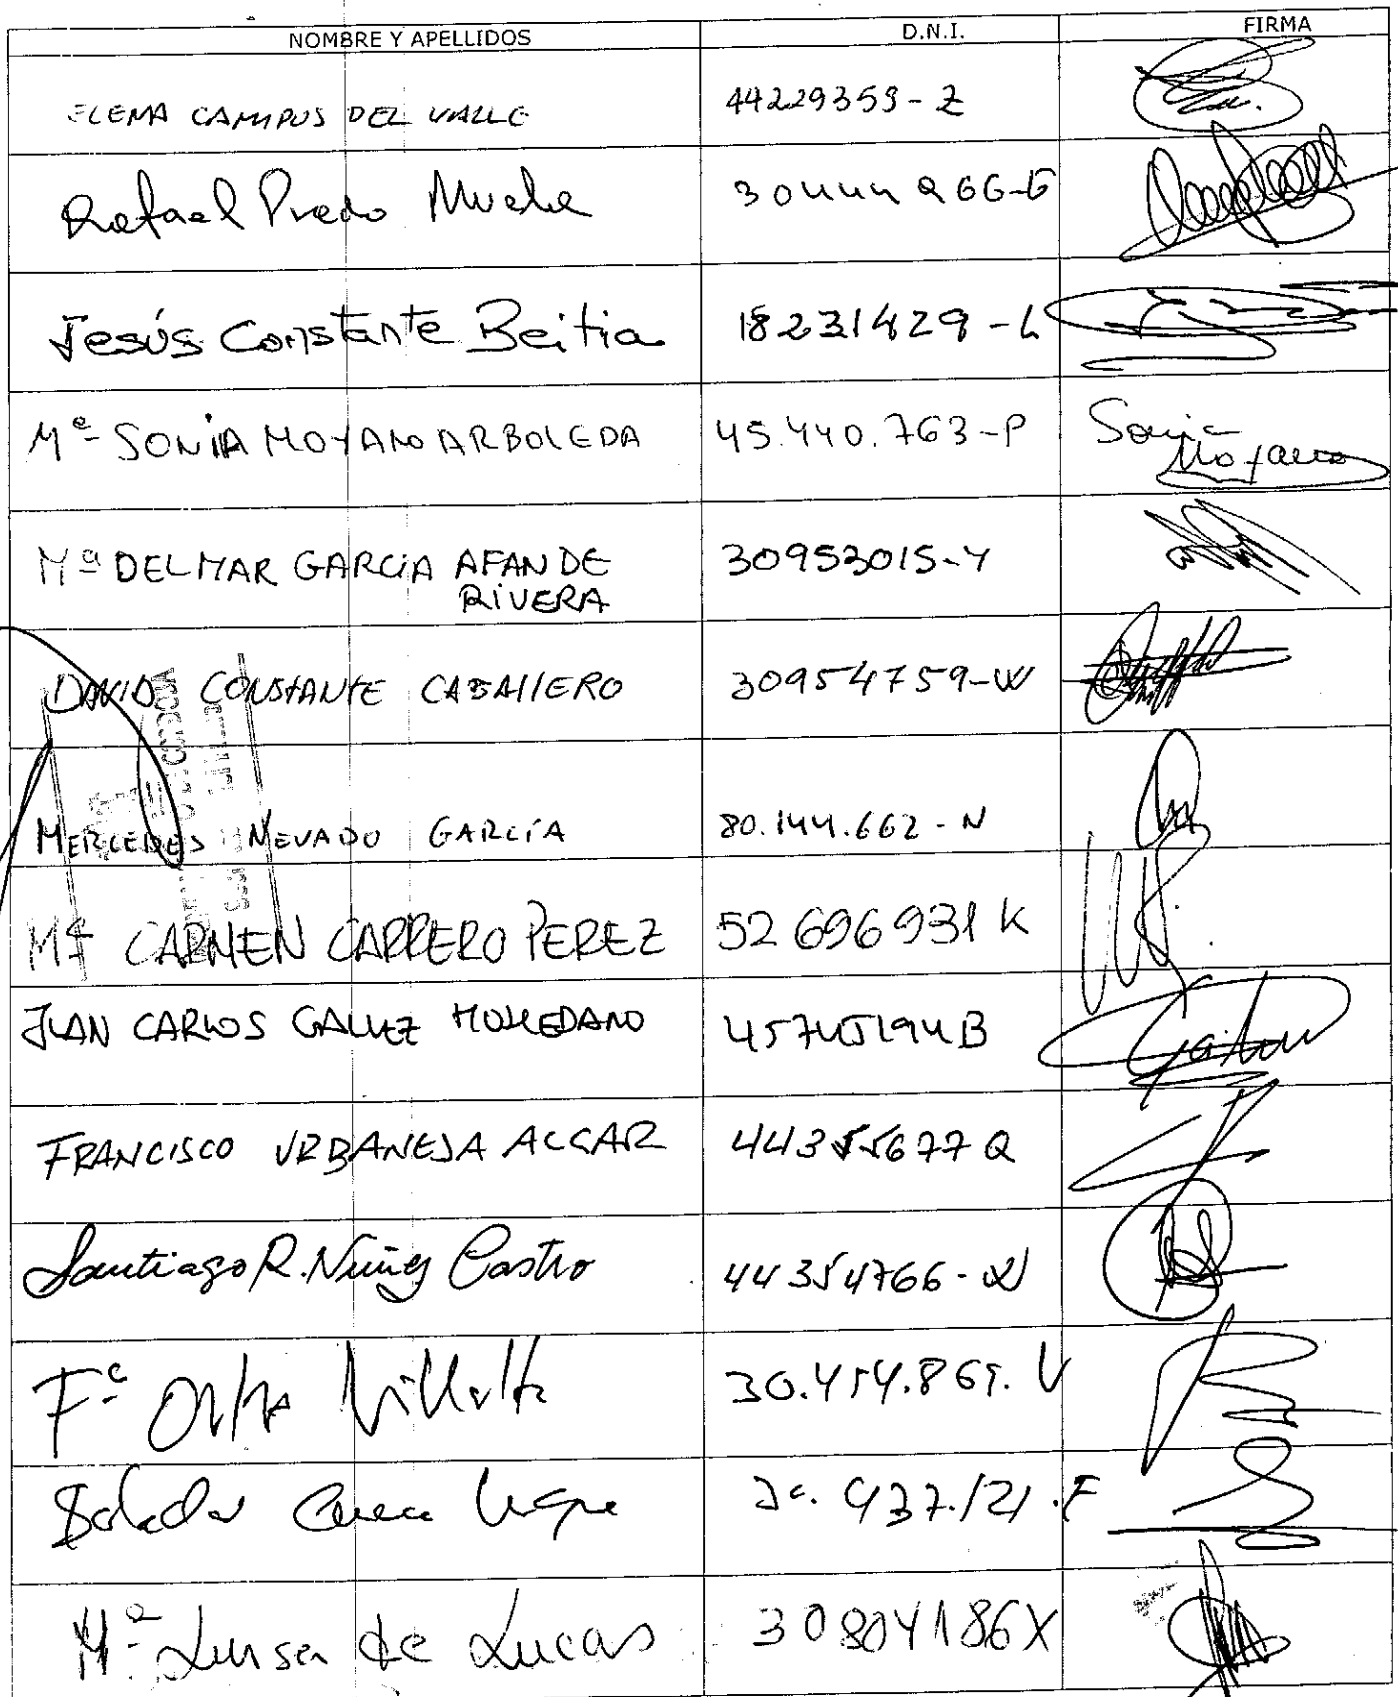 NOMBRE Y APELLIDOS D.N.I. FIRMA
ELENA CAMPOS DEL VALLE 44229359-Z
Rafael Prado 30444266-G
Jesús Constante Beitia 18231429-L
Mª SONIA MOYANO ARBOLEDA 45.440.763-P Sonia
Moyano
Mª DEL MAR GARCIA AFAN DE 30953015-Y
RIVERA
DAVID CONSTANTE CABALLERO 30954759-W
MERCEDES NEVADO GARCÍA 80.144.662-N
Mª CARMEN CARRERO PEREZ 52696931K
JUAN CARLOS GALVEZ MOHEDANO 45745194B
FRANCISCO URBANEJA ALCAR 44355677Q
Santiago R. Nuñez Castro 44354766-W
Fº Villalta
Mª Luisa de Lucas 30804186X